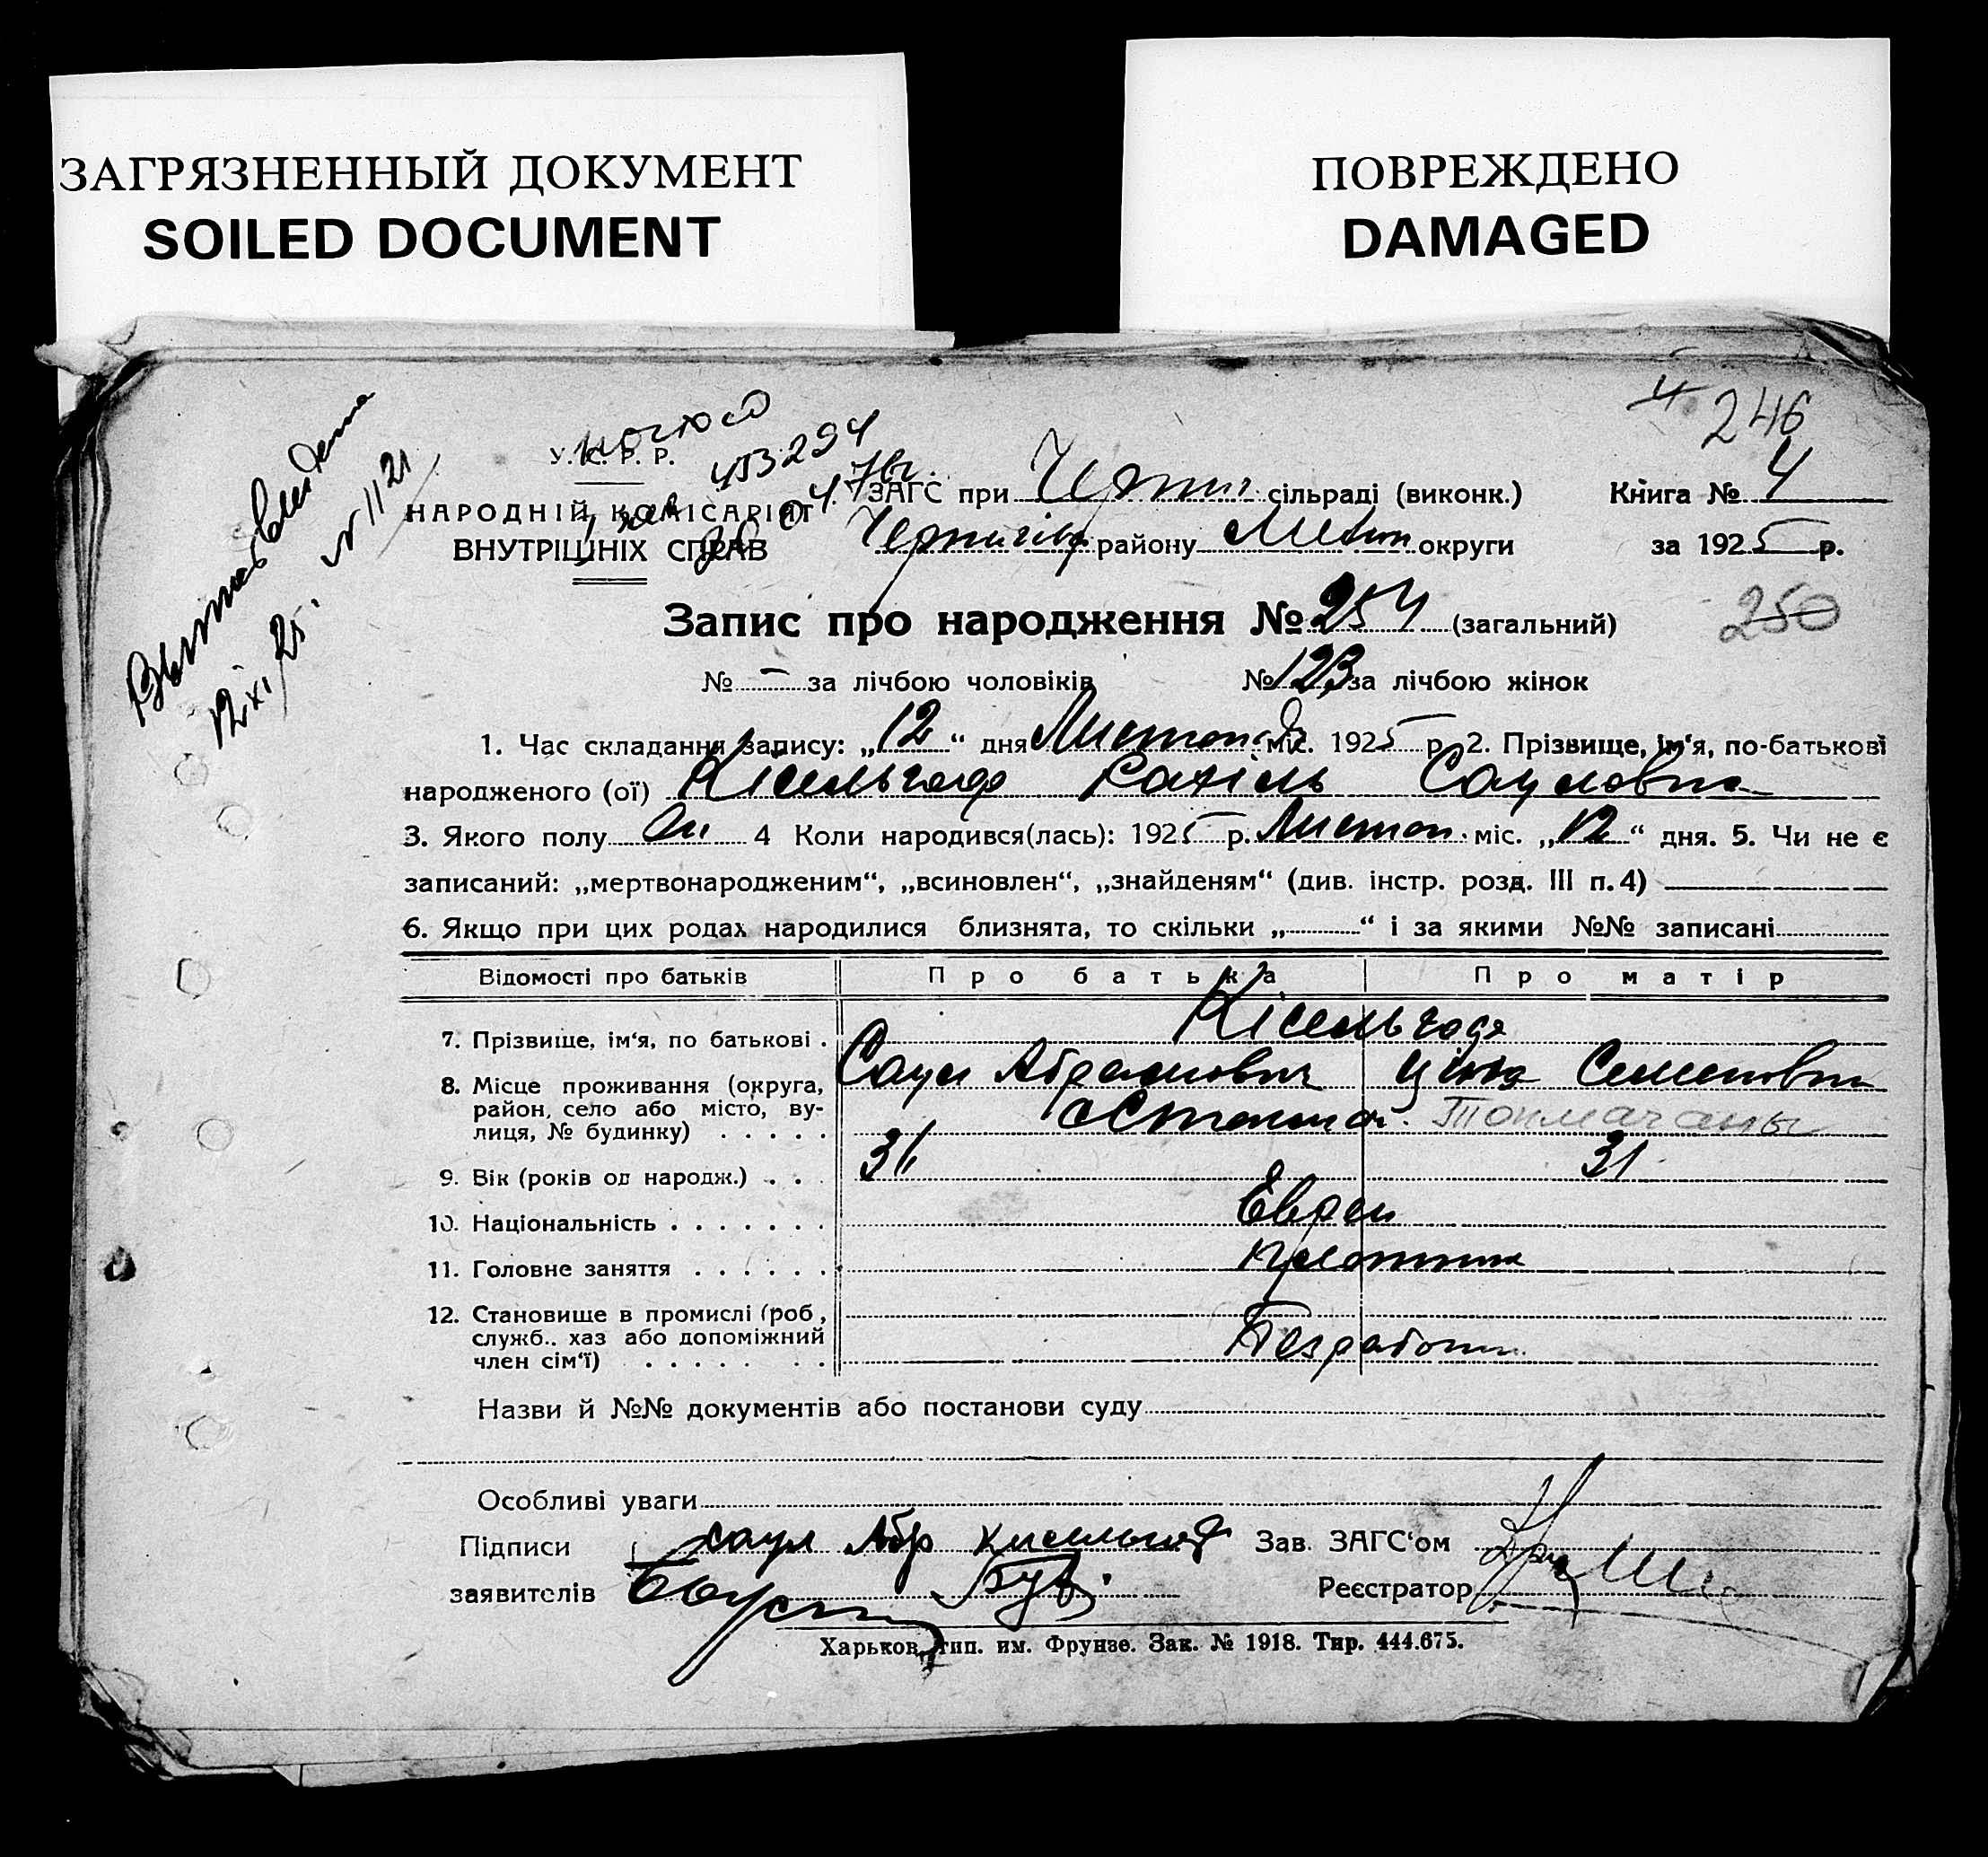 ЗАГРЯЗНЕННЫЙ ДОКУМЕНТ
SOILED DOCUMENT
ПОВРЕЖДЕНО
DAMAGED
246
У. С. Р. Р.
453294
НАРОДНІЙ КОМІСАРІЯТ
ВНУТРІШНІХ СПРАВ
№ 1121
12/XI 25.
ЗАГС при Черниг. сільраді (виконк.) Книга № 4
Чернигів району округи за 1925 р.
Запис про народження № 254 (загальний)
250
№ – за лічбою чоловіків № 123 за лічбою жінок
1. Час складання запису: „12“ дня Листопад міс. 1925 р. 2. Прізвище, ім‘я, по-батькові
народженого (ої) Кісельгоф Рахіль Сауловна
3. Якого полу 4 Коли народився(лась): 1925 р. Листоп. міс. „12“ дня. 5. Чи не є
записаний: „мертвонародженим“, „всиновлен“, „знайденям“ (див. інстр. розд. III п. 4)
6. Якщо при цих родах народилися близнята, то скільки „ “ і за якими №№ записані
Відомості про батьків Про батька Про матір
7. Прізвише, ім‘я, по батькові . Кісельгоф
Саул Абрамович Ціпа Семеновна
8. Місце проживання (округа,
район, село або місто, ву-
лиця, № будинку) . . . . .
9. Вік (років од народж.) . . . 31 31
10. Національність . . . . . . . Евреи
11. Головне заняття . . . . . . плотник
12. Становище в промислі (роб,
служб.. хаз або допоміжний
член сім‘ї) . . . . . . . Безработн.
Назви й №№ документів або постанови суду
Особливі уваги
Підписи Саул Абр Кисельгоф Зав. ЗАГС‘ом
заявителів Реєстратор
Харьков, тип. им. Фрунзе. Зак. № 1918. Тир. 444.675.